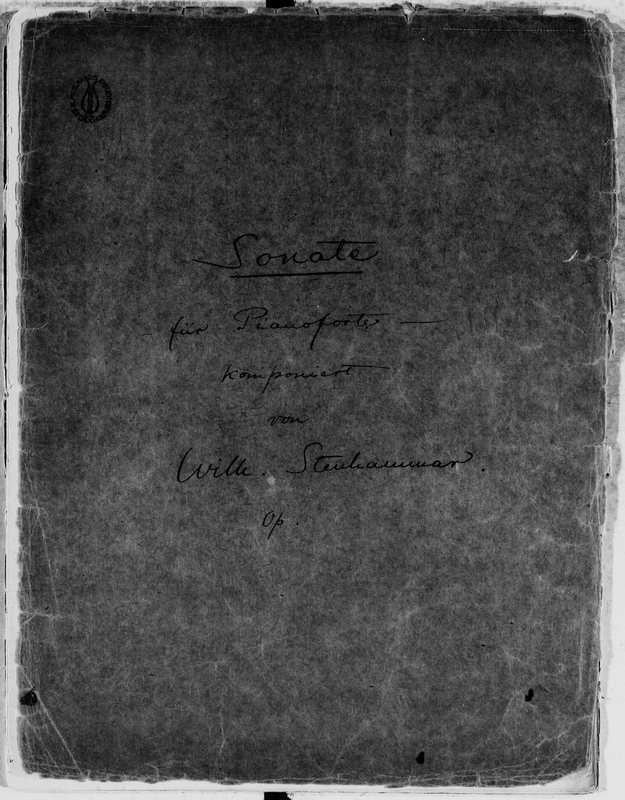 Sonate
für Pianoforte —
komponiert
von
Wilh. Stenhammar.
Op.